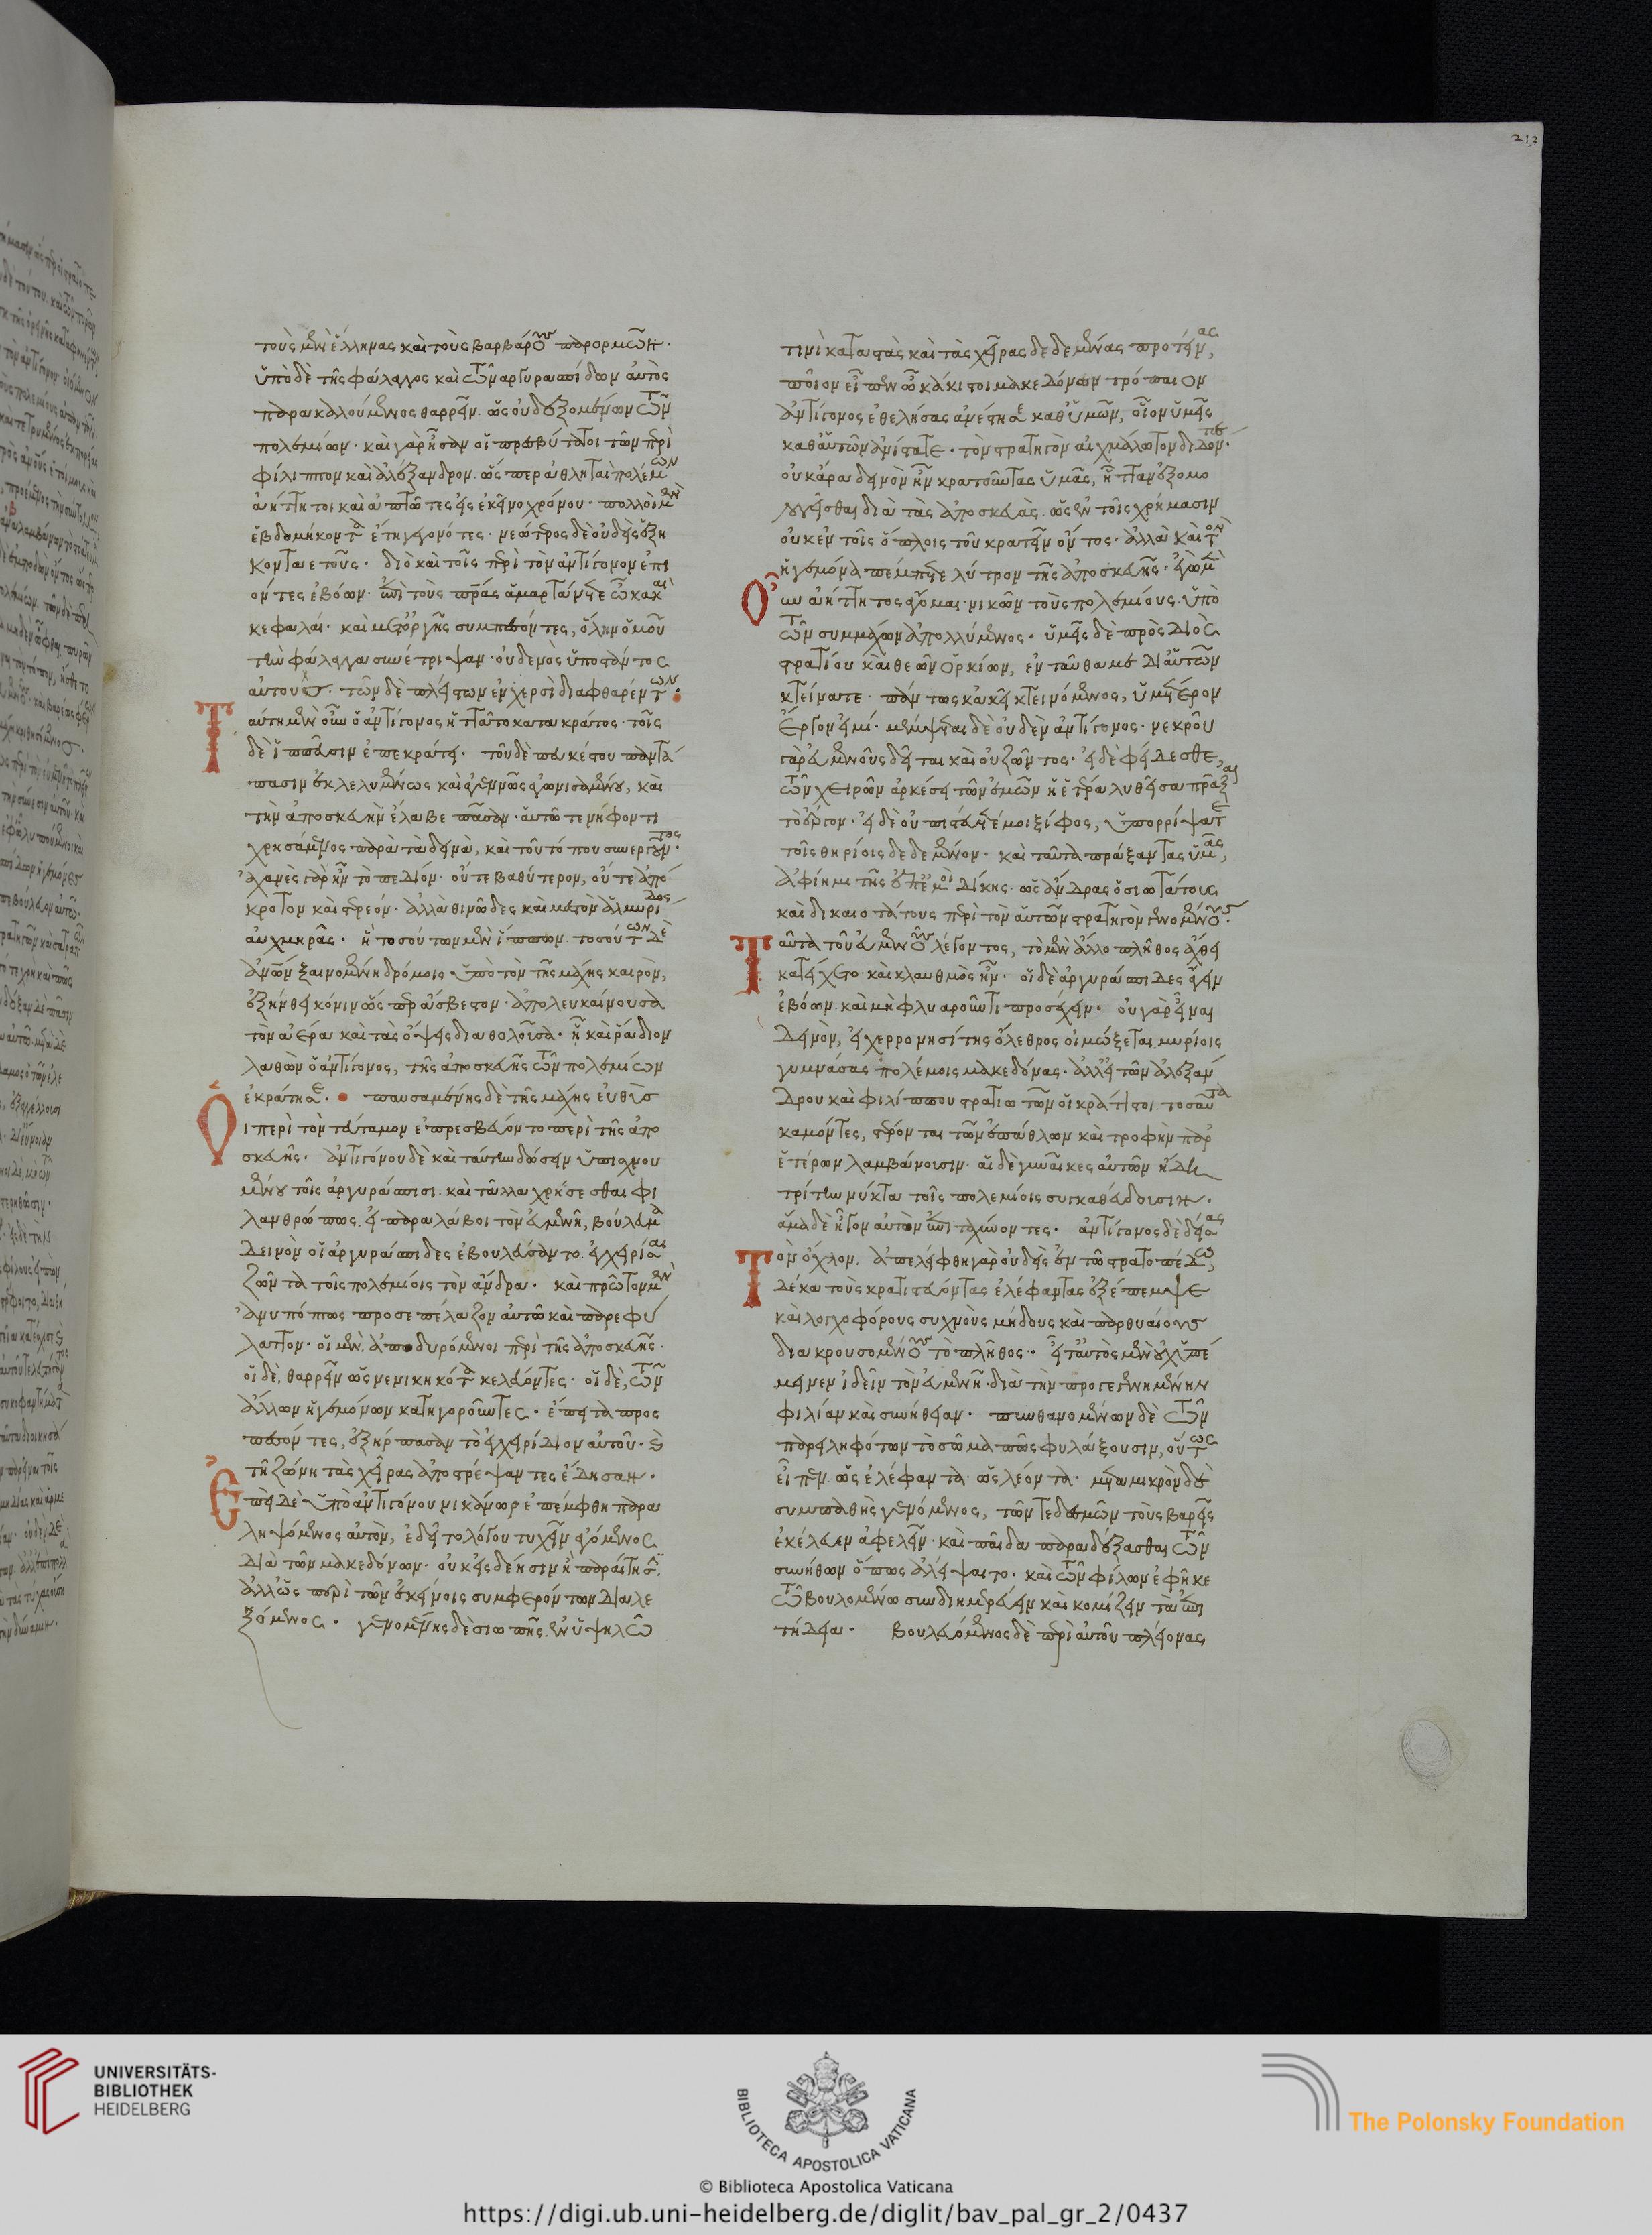 τοὺς μὲν ἕλληνας καὶ τοὺς βαρβάρους παρορμῶν·
ὑπὸ δὲ τῆς φάλαγγος καὶ τῶν ἀργυρασπίδων αὐτὸς
παρακαλούμενος θαρρεῖν. ὡς οὐ δεξομένων τῶν
πολεμίων· καὶ γὰρ ἦσαν οἱ πρεσβύτατοι τῶν περὶ
φίλιππον καὶ ἀλέξανδρον. ὥσπερ ἀθληταὶ πολέμων
ἀήττητοι καὶ ἀπτῶτες εἰς ἐκεῖνο χρόνου· πολλοὶ μὲν
ἑβδομήκοντα ἔτη γεγονότες· νεώτερος δὲ οὐδεὶς ἑξη
κονταετοῦς· διὸ καὶ τοῖς περὶ τὸν ἀντίγονον ἐπι
όντες ἐβόων· ἐπὶ τοὺς πατέρας ἁμαρτάνετε ὦ κακαὶ
κεφαλαί· καὶ μετ' ὀργῆς συμπεσόντες, ὅλην ὁμοῦ
τὴν φάλαγγα συνέτριψαν· οὐδενὸς ὑποστάντος
αὐτούς. τῶν δὲ πλείστων ἐν χερσὶ διαφθαρέντων·
Ταύτη μὲν οὖν ὁ ἀντίγονος ἡττᾶτο κατακράτος· τοῖς
δὲ ἱππεῦσιν ἐπεκράτει· τοῦ δὲ πευκέστου παντά
πασιν ἐκλελυμένως καὶ ἀγεννῶς ἀγωνισαμένου, καὶ
τὴν ἀποσκευὴν ἔλαβε πᾶσαν· αὑτῷ τε νήφοντι
χρησάμενος παρὰ τὰ δεινά, καὶ τοῦ τόπου συνεργοῦντος·
ἀχανὲς γὰρ ἦν τὸ πεδίον· οὔτε βαθύτερον, οὔτε ἀπό
κροτον καὶ στερεόν· ἀλλὰ θινῶδες καὶ μεστὸν ἁλμυρίδος
αὐχμηρᾶς· ἣ τοσούτων μὲν ἵππων. τοσούτων δὲ
ἀνθρώπων ξαινομένη δρόμοις ὑπὸ τὸν τῆς μάχης καιρὸν,
ἐξήνθει κόνιν ὥσπερ ἄσβεστον· ἀπολευκαίνουσα
τὸν ἀέρα καὶ τὰς ὄψεις διαθολοῦσα· ᾗ καὶ ῥάδιον
λαθὼν ὁ ἀντίγονος, τῆς ἀποσκευῆς τῶν πολεμίων
ἐκράτησε· παυσαμένης δὲ τῆς μάχης εὐθὺς
Οἱ περὶ τὸν τεύταμον ἐπρεσβεύοντο περὶ τῆς ἀπο
σκευῆς· ἀντιγόνου δὲ καὶ ταύτην δώσειν ὑπισχνου
μένου τοῖς ἀργυράσπισι. καὶ τἄλλα χρήσεσθαι φι
λανθρώπως. εἰ παραλάβοι τὸν εὐμένη, βούλευμα
δεινὸν οἱ ἀργυράσπιδες ἐβουλεύσαντο. ἐγχειρίσαι
ζῶντα τοῖς πολεμίοις τὸν ἄνδρα· καὶ πρῶτον μὲν
ἀνυπόπτως προσεπέλαζον αὐτῷ καὶ παρεφύ
λαττον· οἱ μὲν, ἀποδυρόμενοι περὶ τῆς ἀποσκευῆς·
οἱ δὲ, θαρρεῖν ὡς νενικηκότα κελεύοντες· οἱ δὲ, τῶν
ἄλλων ἡγεμόνων κατηγοροῦντες· ἔπειτα προς
πεσόντες, ἐξήρπασαν τὸ ἐγχειρίδιον αὐτοῦ· καὶ
τῇ ζώνῃ τὰς χεῖρας ἀποστρέψαντες ἔδησαν·
Ἐπεὶ δὲ ὑπὸ ἀντιγόνου νικάνωρ ἐπέμφθη παρα
ληψόμενος αὐτὸν, ἐδεῖτο λόγου τυχεῖν ἀγόμενος
διὰ τῶν μακεδόνων· οὐκ εἰς δέησιν ἢ παραίτησιν.
ἀλλ' ὡς περὶ τῶν ἐκείνοις συμφερόντων διαλε
ξόμενος· γενομένης δὲ σιωπῆς. ἐν ὑψηλῷ
τινὶ καταστὰς καὶ τὰς χεῖρας δεδεμένας προτείνας,
ποῖον εἶπεν ὦ κάκιστοι μακεδόνων τρόπαιον
ἀντίγονος ἐθελήσας ἀνέστησε καθ' ὑμῶν, οἷον ὑμεῖς
καθ' αὑτῶν ἀνίστατε· τὸν στρατηγὸν αἰχμάλωτον διδόντες·
οὐκ ἄρα δεινὸν ἦν κρατοῦντας ὑμᾶς, ἧτταν ἐξομο
λογεῖσθαι διὰ τὰς ἀποσκευὰς. ὡς ἐν τοῖς χρήμασιν
οὐκ ἐν τοῖς ὅπλοις τοῦ κρατεῖν ὄντος· ἀλλὰ καὶ τὸν
ἡγεμόνα πέμπετε λύτρον τῆς ἀποσκευῆς· ἐγὼ μὲν
Οὖν ἀήττητος ἄγομαι· νικῶν τοὺς πολεμίους. ὑπὸ
τῶν συμμάχων ἀπολλύμενος· ὑμεῖς δὲ πρὸς διὸς
στρατίου καὶ θεῶν ὁρκίων, ἐνταῦθα με δι' αὑτῶν
κτείνατε· πάντως κἀκεῖ κτεινόμενος, ὑμέτερον
ἔργον εἰμί· μέμψεται δὲ οὐδὲν ἀντίγονος· νεκροῦ
γὰρ εὐμένους δεῖται καὶ οὐ ζῶντος· εἰ δὲ φείδεσθε,
τῶν χειρῶν ἀρκέσει τῶν ἐμῶν ἡ ἑτέρα λυθεῖσα πρᾶξαι
τὸ ἔργον· εἰ δὲ οὐ πιστεύετέ μοι ξίφος, ὑπορρίψατε
τοῖς θηρίοις δεδεμένον· καὶ ταῦτα πράξαντας ὑμᾶς,
ἀφίημι τῆς ἐπ' ἐμοὶ δίκης. ὡς ἄνδρας ὁσιωτάτους
καὶ δικαιοτάτους περὶ τὸν αὑτῶν στρατηγὸν γενομένους·
Ταῦτα τοῦ εὐμένους λέγοντος, τὸ μὲν ἄλλο πλῆθος ἄχθει
κατείχετο· καὶ κλαυθμὸς ἦν· οἱ δὲ ἀργυράσπιδες ἄγειν
ἐβόων. καὶ μὴ φλυαροῦντι προσέχειν· οὐ γὰρ εἶναι
δεινὸν, εἰ χερρονησίτης ὄλεθρος οἰμώξεται. μυρίοις
γυμνάσας πολέμοις μακεδόνας. ἀλλ' εἰ τῶν ἀλεξάν
δρου καὶ φιλίππου στρατιωτῶν οἱ κράτιστοι. τοσαῦτα
καμόντες, στέρονται τῶν ἐπάθλων καὶ τροφὴν παρ'
ἑτέρων λαμβάνουσιν. αἱ δὲ γυναῖκες αὐτῶν ἤδη
τρίτην νύκτα τοῖς πολεμίοις συγκαθεύδουσιν·
ἅμα δὲ ἦγον αὐτὸν ἐπιταχύνοντες· ἀντίγονος δὲ δείσας
Τὸν ὄχλον. ἀπελείφθη γὰρ οὐδεὶς ἐν τῷ στρατοπέδῳ,
δέκα τοὺς κρατιστεύοντας ἐλέφαντας ἐξέπεμψε
καὶ λογχοφόρους συχνοὺς μήδους καὶ παρθυαίους
διακρουσομένους τὸ πλῆθος· εἶτ' αὐτὸς μὲν οὐχ' ὑπέ
μεινεν ἰδεῖν τὸν εὐμένη· διὰ τὴν προγεγενημένην
φιλίαν καὶ συνήθειαν· πυνθανομένων δὲ τῶν
παρειληφότων τὸ σῶμα πῶς φυλάξουσιν, οὕτως
εἶπεν. ὡς ἐλέφαντα. ὡς λέοντα· μετὰ μικρὸν δὲ
συμπαθὴς γενόμενος, τῶν τε δεσμῶν τοὺς βαρεῖς
ἐκέλευεν ἀφελεῖν· καὶ παῖδα παραδέξασθαι τῶν
συνήθων ὅπως ἀλείψαιτο· καὶ τῶν φίλων ἐφῆκε
τῷ βουλομένῳ συνδιημερεύειν καὶ κομίζειν τὰ ἐπι
τήδεια· βουλευόμενος δὲ περὶ αὐτοῦ πλείονας
213
UNIVERSITÄTS-
BIBLIOTHEK
HEIDELBERG
BIBLIOTECA APOSTOLICA VATICANA
The Polonsky Foundation
© Biblioteca Apostolica Vaticana
https://digi.ub.uni-heidelberg.de/diglit/bav_pal_gr_2/0437